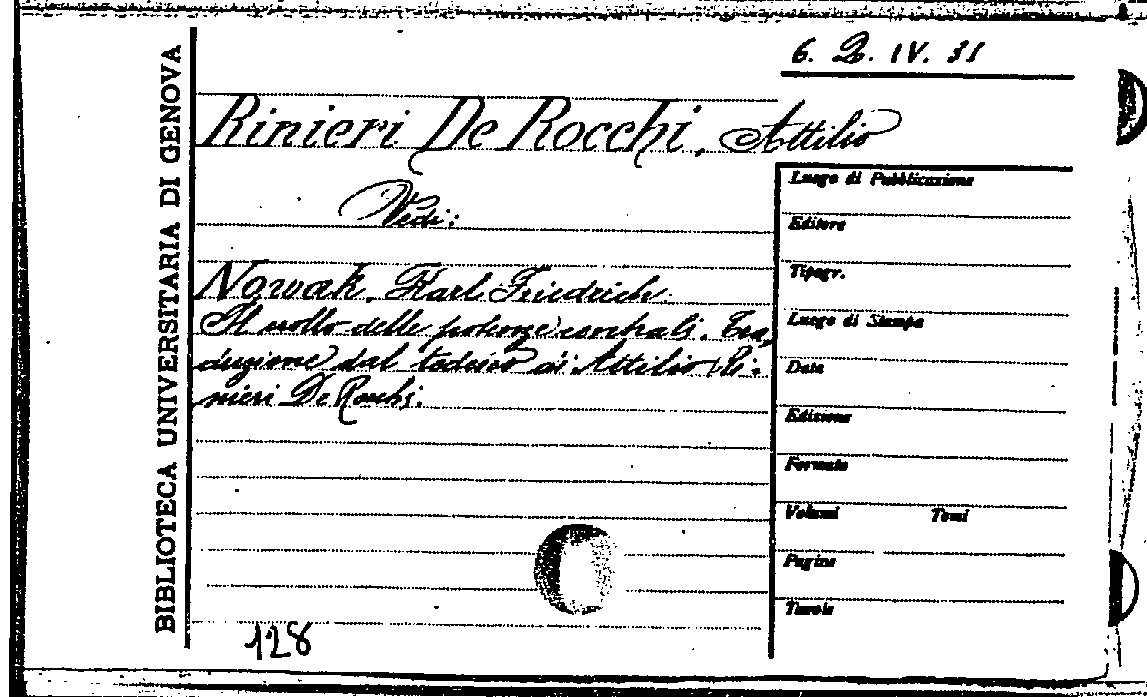 BIBLIOTECA UNIVERSITARIA DI GENOVA
6. Q. IV. 31
Rinieri De Rocchi, Attilio
Vedi:
Nowak, Karl Friedrich.
Il crollo delle potenze centrali. Tra,
duzione dal tedesco di Attilio Ri-
nieri De Rocchi.
Luogo di Pubblicazione
Editore
Tipogr.
Luogo di Stampa
Data
Edizione
Formato
Volumi Tomi
Pagine
Tavole
128